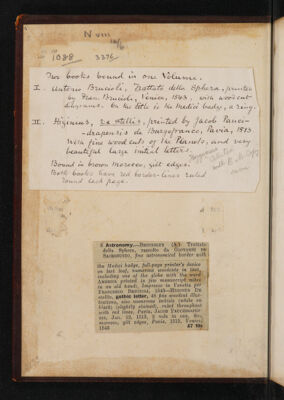 N VIII
1088 3376
Two books bound in one Volume.
I. Antonio Brucioli, Trattato della Sphera, printed
by Fran. Brucioli, Venice, 1543, with woodcut
diagrams. On the title is the Medici badge, a ring.
II. Higinius, De stellis, printed by Jacob Pauci-
drapensis de Burgofranco, Pavia, 1513
With fine wood cuts of the Planets, and very
beautiful large initial letters.
Bound in brown Morocco, gilt edges.
Both books have red border-lines ruled
round each page.
Hyginus
with
Astronomy.—BRUCIOLI (A.) Trattato
della Sphera, raccolto da GIOVANNI DE
SACROBUSTO, fine astronomical border with
the Medici badge, full-page printer's device
on last leaf, numerous woodcuts in text,
including one of the globe with the word
AMERICA printed in
in an old hand, Impresso in Venetia per
FRANCESCO BRUCIOLI, 1543—HIGINIUS De
stellis, gothic letter, 48 fine woodcut illus-
trations, also numerous initials
black; (slightly stained), ruled throughout
with red lines, Pavia, JACOB PAUCIDRAPEN-
SIS, Jan. 1513, 2 vols in one, 4to,
morocco, gilt edges, Pavia, 1513, Venice,
1543